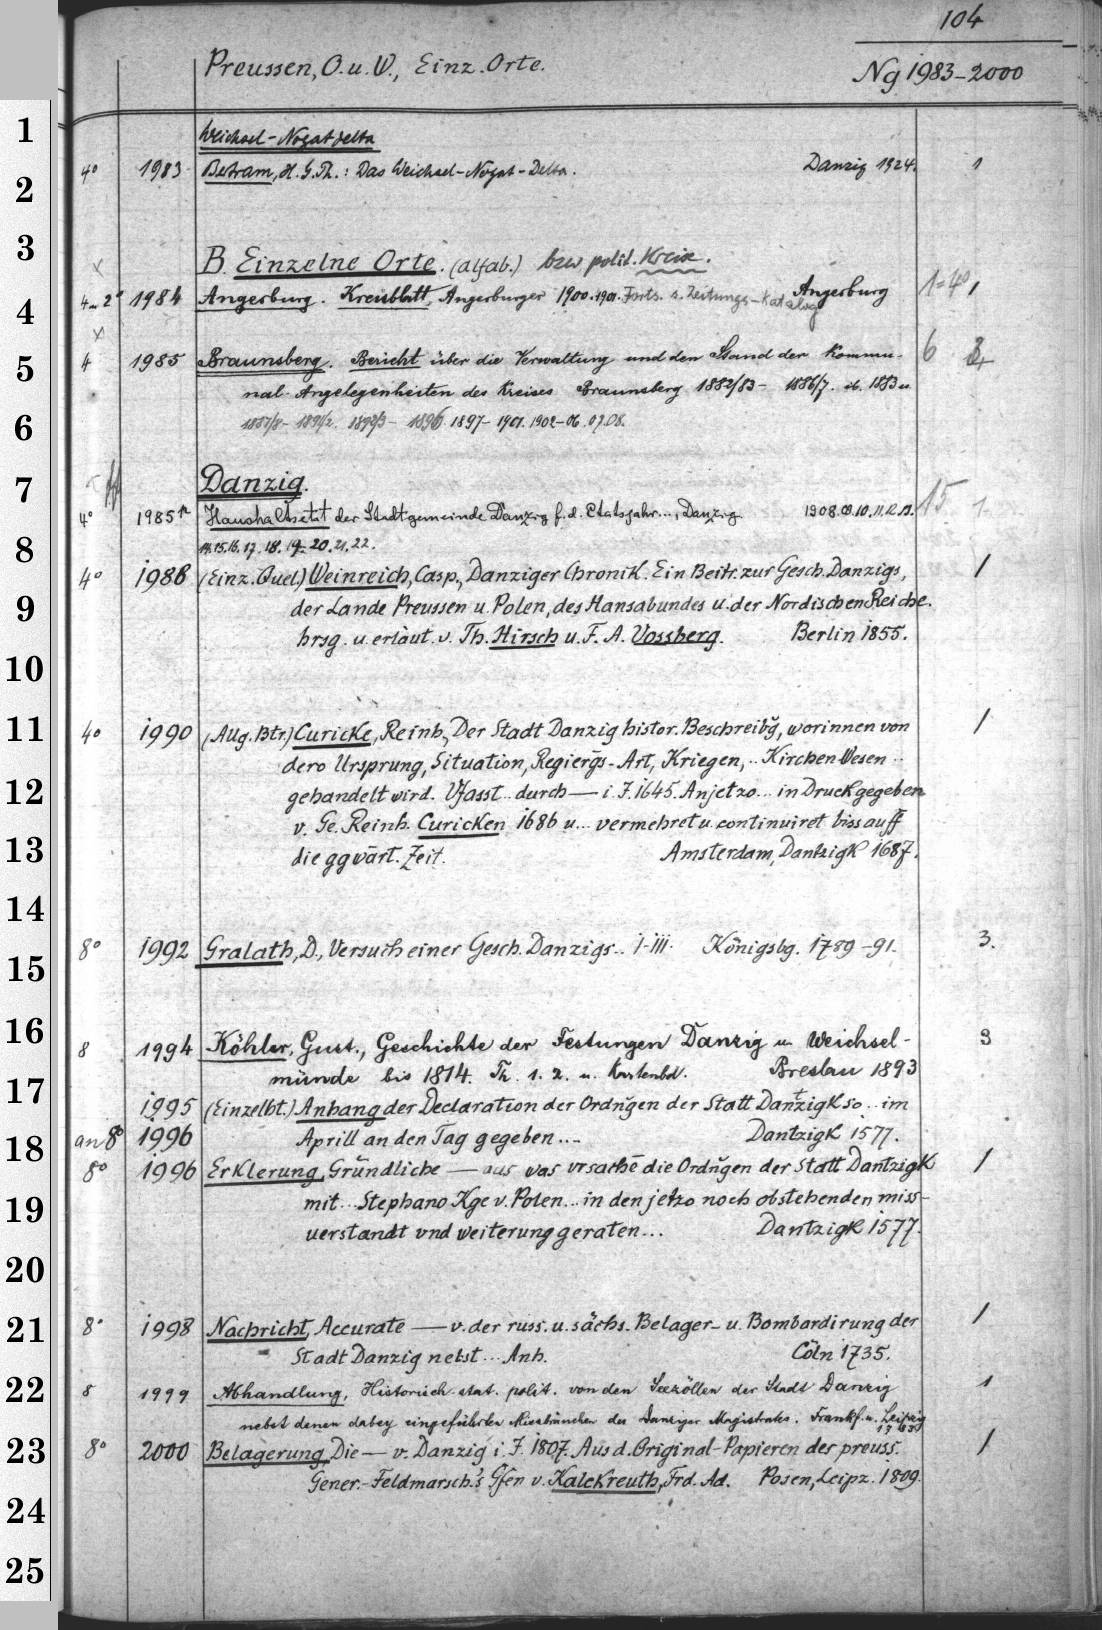 104
Preussen, O. u. W., Einz. Orte.
Ng 1983-2000
1
Weichsel-Nogatdelta
4° 1983 Betram, H. G. Th.: Das Weichsel-Nogat-Delta. Danzig 1924. 1
2
3
B. Einzelne Orte. (alfab.) bzw polit. Kreise.
4 u. 2° 1984 Angerburg. Kreisblatt, Angerburger 1900. 1901. Forts. s. Zeitungs-Katalog Angerburg 1-4
4
4 1985 Braunsberg. Bericht über die Verwaltung und den Stand der Kommu- 6
5
nal-Angelegenheiten des Kreises Braunsberg 1882/83- 1886/7. ib. 1883 u
6
1887/8- 1891/2. 1892/3- 1896 1897- 1901. 1902-06. 07. 08.
7
Danzig.
4° 1985 Haushaltsetat der Stadtgemeinde Danzig f. d. Etatsjahr..., Danzig 1908. 09. 10. 11. 12. 13. 15
14. 15. 16. 17. 18. 19. 20. 21. 22.
8
4° 1988 (Einz. Quel.) Weinreich, Casp., Danziger Chronik. Ein Beitr. zur Gesch. Danzigs, 1
9
der Lande Preussen u. Polen, des Hansabundes u. der Nordischen Reiche.
hrsg. u. erläut. v. Th. Hirsch u. F. A. Vossberg. Berlin 1855.
10
11
4° 1990 (Allg. Btr.) Curicke, Reinh., Der Stadt Danzig histor. Beschreibg, worinnen von 1
dero Ursprung, Situation, Regiergs-Art, Kriegen, .. Kirchen Wesen ..
12
gehandelt wird. Vfasst .. durch — i. J. 1645. Anjetzo... in Druck gegeben
v. Ge. Reinh. Curicken 1686 u... vermehret u. continuiret biss auff
13
die ggwärt. Zeit. Amsterdam, Dantzigk 1687.
14
8° 1992 Gralath, D., Versuch einer Gesch. Danzigs.. I-III. Königsbg. 1789-91. 3.
15
16
8 1994 Köhler, Gust., Geschichte der Festungen Danzig u. Weichsel- 3
münde bis 1814. Th. 1. 2. u. Kartenbd. Breslau 1893
17
1995 (Einzelbt.) Anhang der Declaration der Ordngen der Statt Dantzigk so .. im
an 8° 1996 Aprill an den Tag gegeben... Dantzigk 1577.
18
8° 1996 Erklerung, Gründliche — aus was vrsache die Ordngen der Statt Dantzigk 1
19
mit... Stephano Kge v. Polen... in den jetzo noch obstehenden miss-
uerstandt vnd weiterung geraten... Dantzigk 1577.
20
21
8° 1998 Nachricht, Accurate — v. der russ. u. sächs. Belager- u. Bombardirung der 1
Stadt Danzig nebst ... Anh. Cöln 1735.
22
8 1999 Abhandlung, Historisch-stat. polit. von den Seezöllen der Stadt Danzig 1
nebst denen dabey eingeführten Missbräuchen des Danziger Magistrates. Frankf. u. Leipzig
23
8° 2000 Belagerung, Die — v. Danzig i. J. 1807. Aus d. Original-Papieren des preuss. 1
Gener.-Feldmarsch.'s Gfen v. Kalckreuth, Frd. Ad. Posen, Leipz. 1809.
24
25